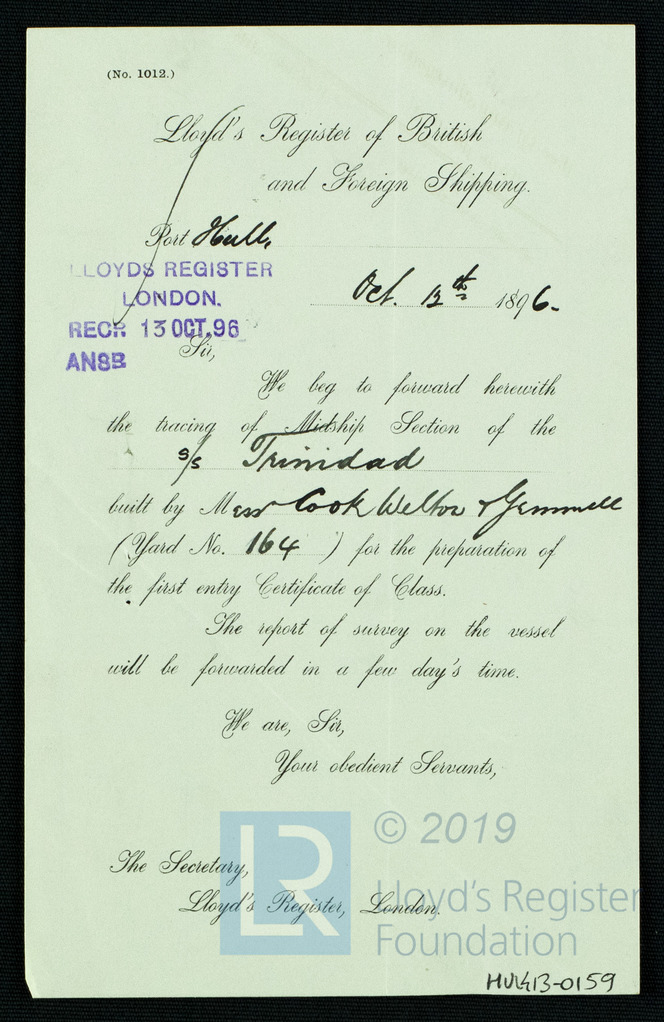 (No. 1012.)
Lloyd's Register of British
and Foreign Shipping.
Port Hull,
LLOYDS REGISTER
LONDON.
RECR 13 OCT. 96
ANSB
Oct. 12th 1896.
Sir,
We beg to forward herewith
the tracing of Midship Section of the
s/s Trinidad
built by Mess Cook Welton & Gemmell
(Yard No. 164 ) for the preparation of
the first entry Certificate of Class.
The report of survey on the vessel
will be forwarded in a few day's time.
We are, Sir,
Your obedient Servants,
The Secretary,
Lloyd's Register, London.
LR
© 2019
Lloyd's Register
Foundation
HUL413-0159